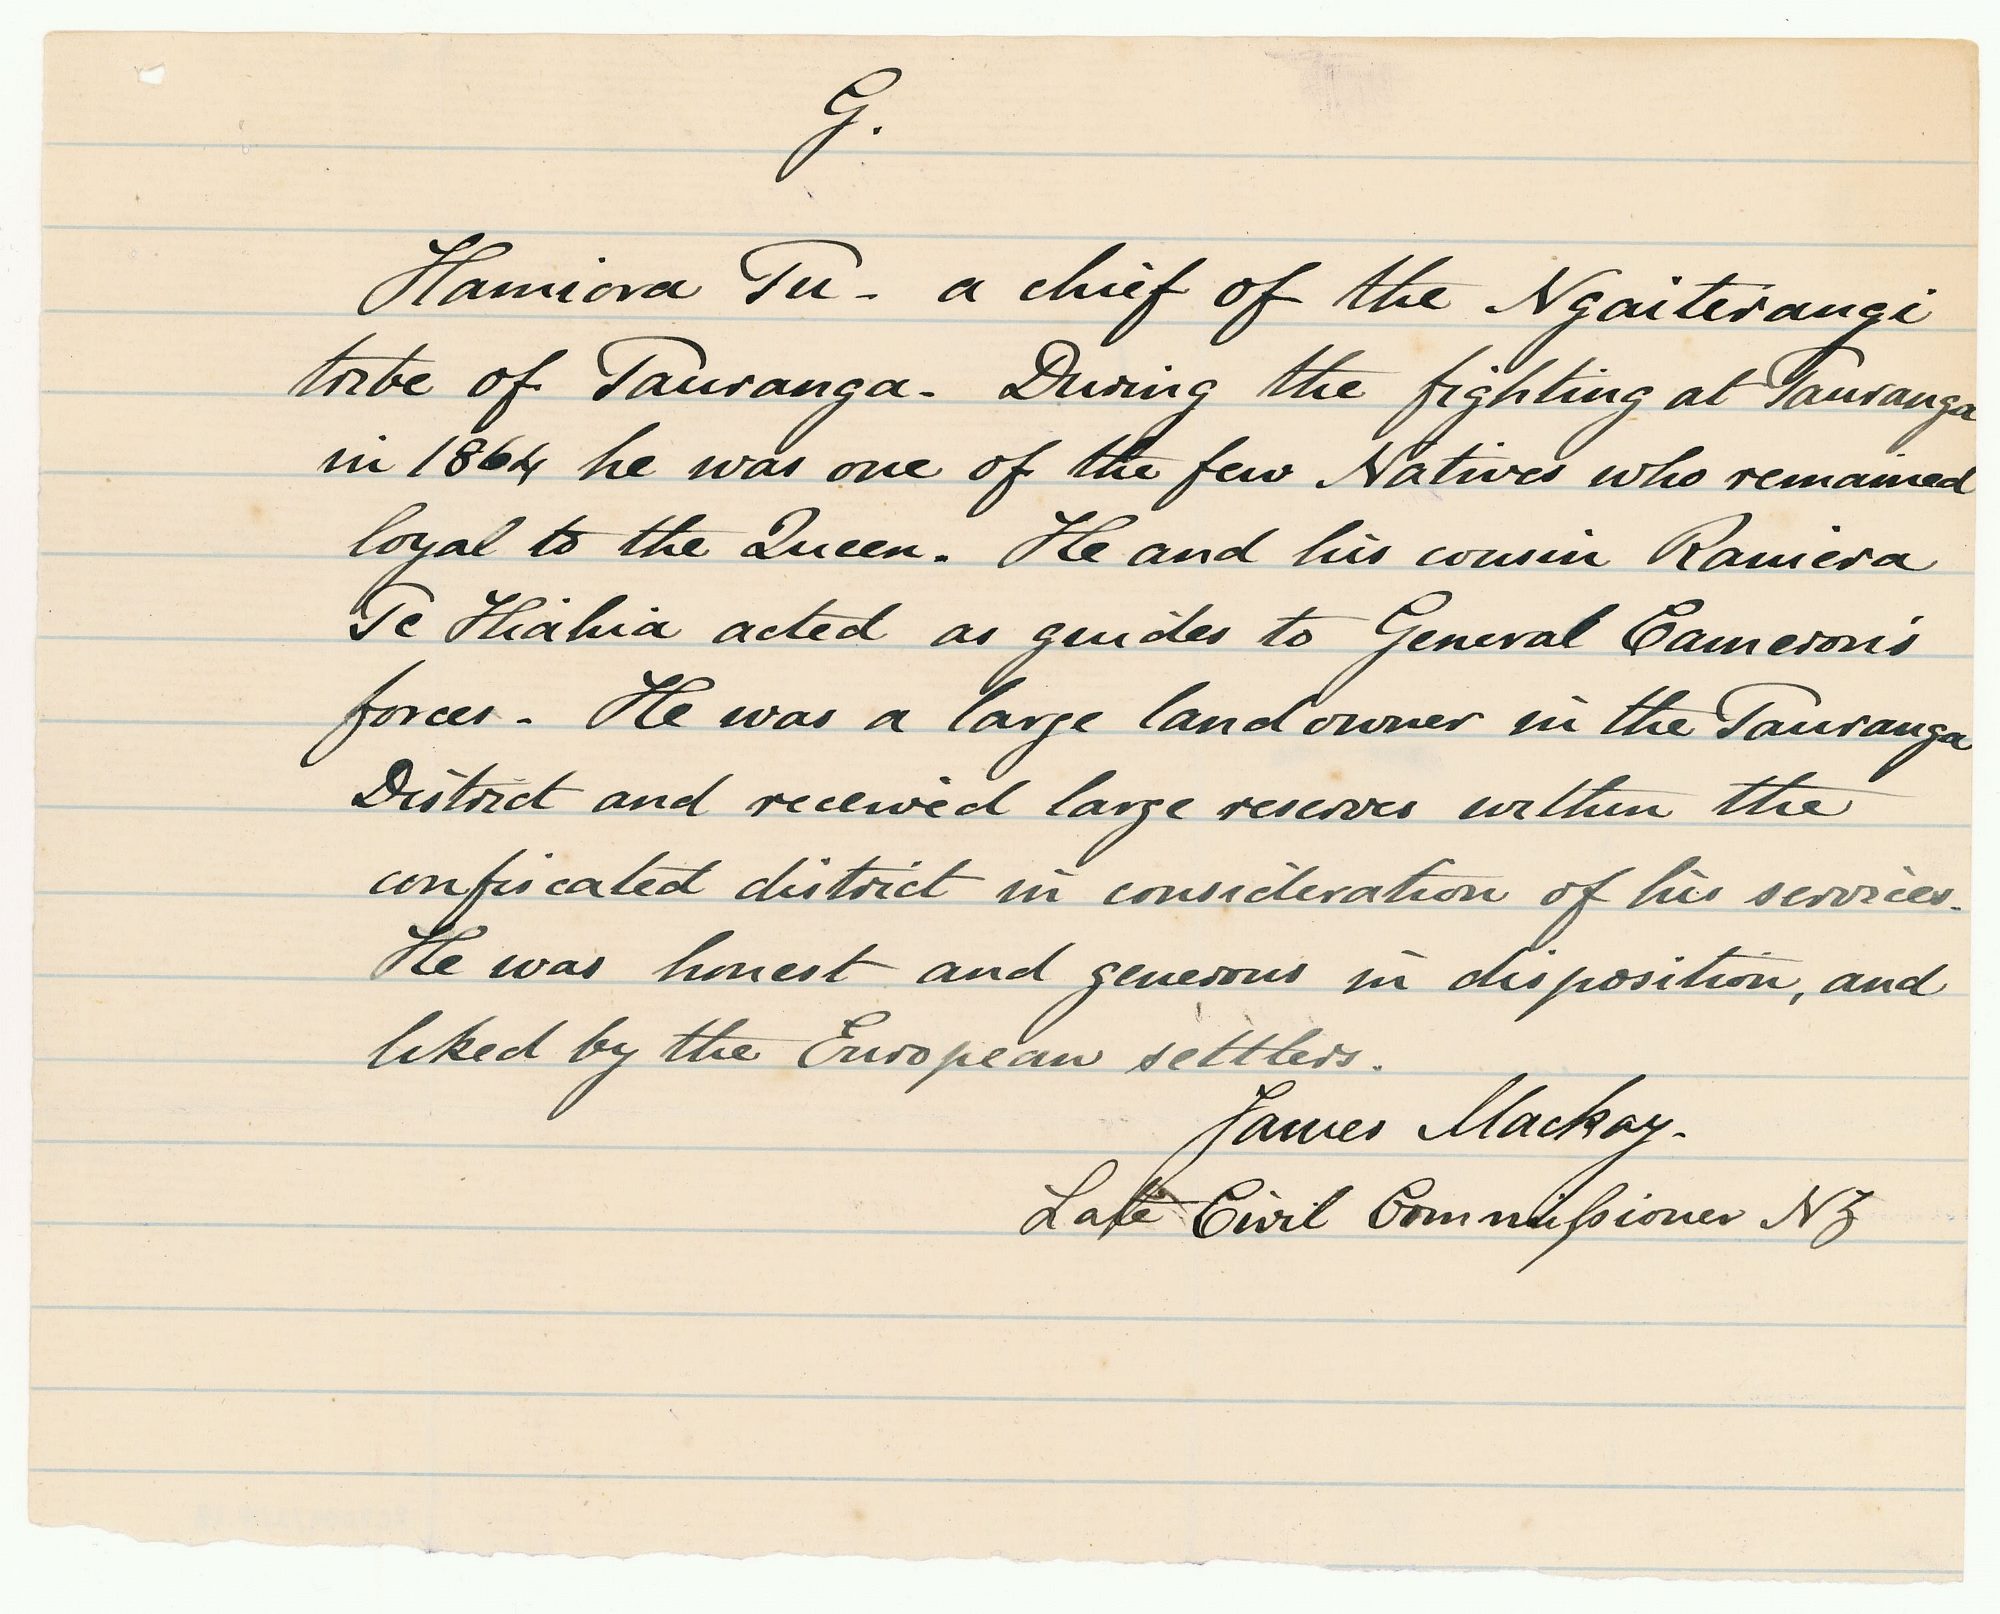 G.
Hamiora Tu - a chief of the Ngaiterangi
tribe of Tauranga - During the fighting at Tauranga
in 1864 he was one of the few Natives who remained
loyal to the Queen. He and his cousin Raniera
Te Hiahia acted as guides to General Cameron's
forces - He was a large landowner in the Tauranga
District and received large reserves within the
confiscated district in consideration of his services.
He was honest and generous in disposition, and
liked by the European settlers.
James Mackay.
Late Civil Commissioner NZ